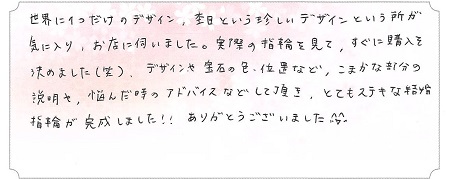 世界に1つだけのデザイン，杢目という珍しいデザインという所が
気に入り，お店に伺いました。実際の指輪を見て，すぐに購入を
決めました(笑)．デザインや宝石の色、位置など，こまかな部分の
説明や，悩んだ時のアドバイスなどして頂き，とてもステキな結婚
指輪が完成しました!! ありがとうございました